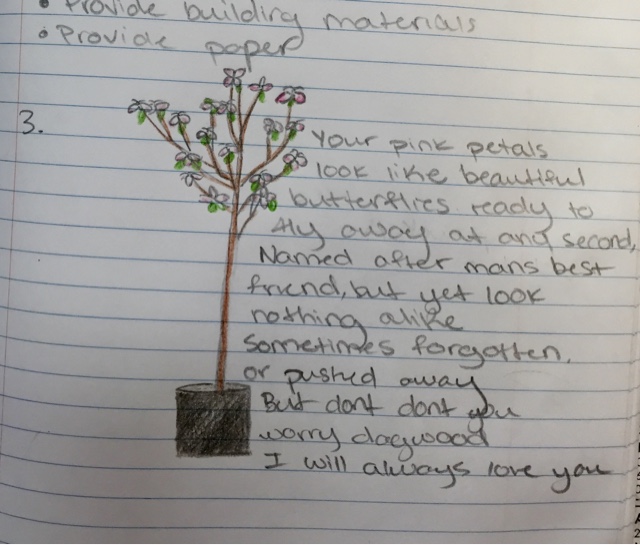 • Provide building materials
• Provide paper
3.
Your pink petals
look like beautiful
butterflies ready to
fly away at and second,
Named after mans best
friend, but yet look
nothing alike
sometimes forgotten,
or pushed away
But dont dont you
worry dogwood
I will always love you